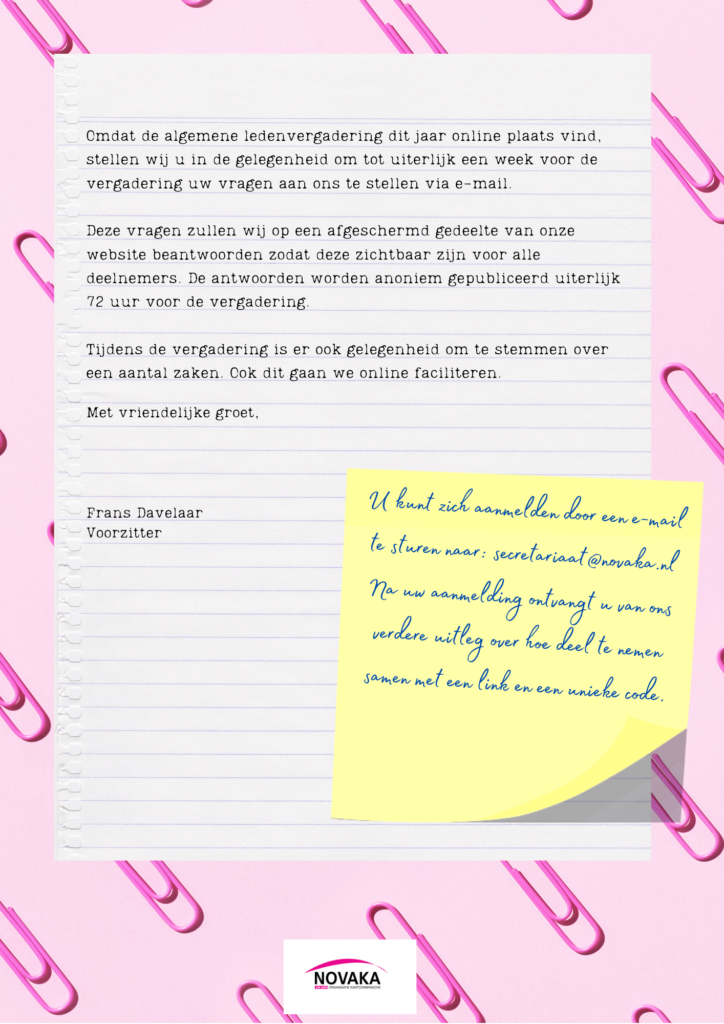 Omdat de algemene ledenvergadering dit jaar online plaats vind,
stellen wij u in de gelegenheid om tot uiterlijk een week voor de
vergadering uw vragen aan ons te stellen via e-mail.
Deze vragen zullen wij op een afgeschermd gedeelte van onze
website beantwoorden zodat deze zichtbaar zijn voor alle
deelnemers. De antwoorden worden anoniem gepubliceerd uiterlijk
72 uur voor de vergadering.
Tijdens de vergadering is er ook gelegenheid om te stemmen over
een aantal zaken. Ook dit gaan we online faciliteren.
Met vriendelijke groet,
Frans Davelaar
Voorzitter
U kunt zich aanmelden door een e-mail
te sturen naar: secretariaat@novaka.nl
Na uw aanmelding ontvangt u van ons
verdere uitleg over hoe deel te nemen
samen met een link en een unieke code.
NOVAKA